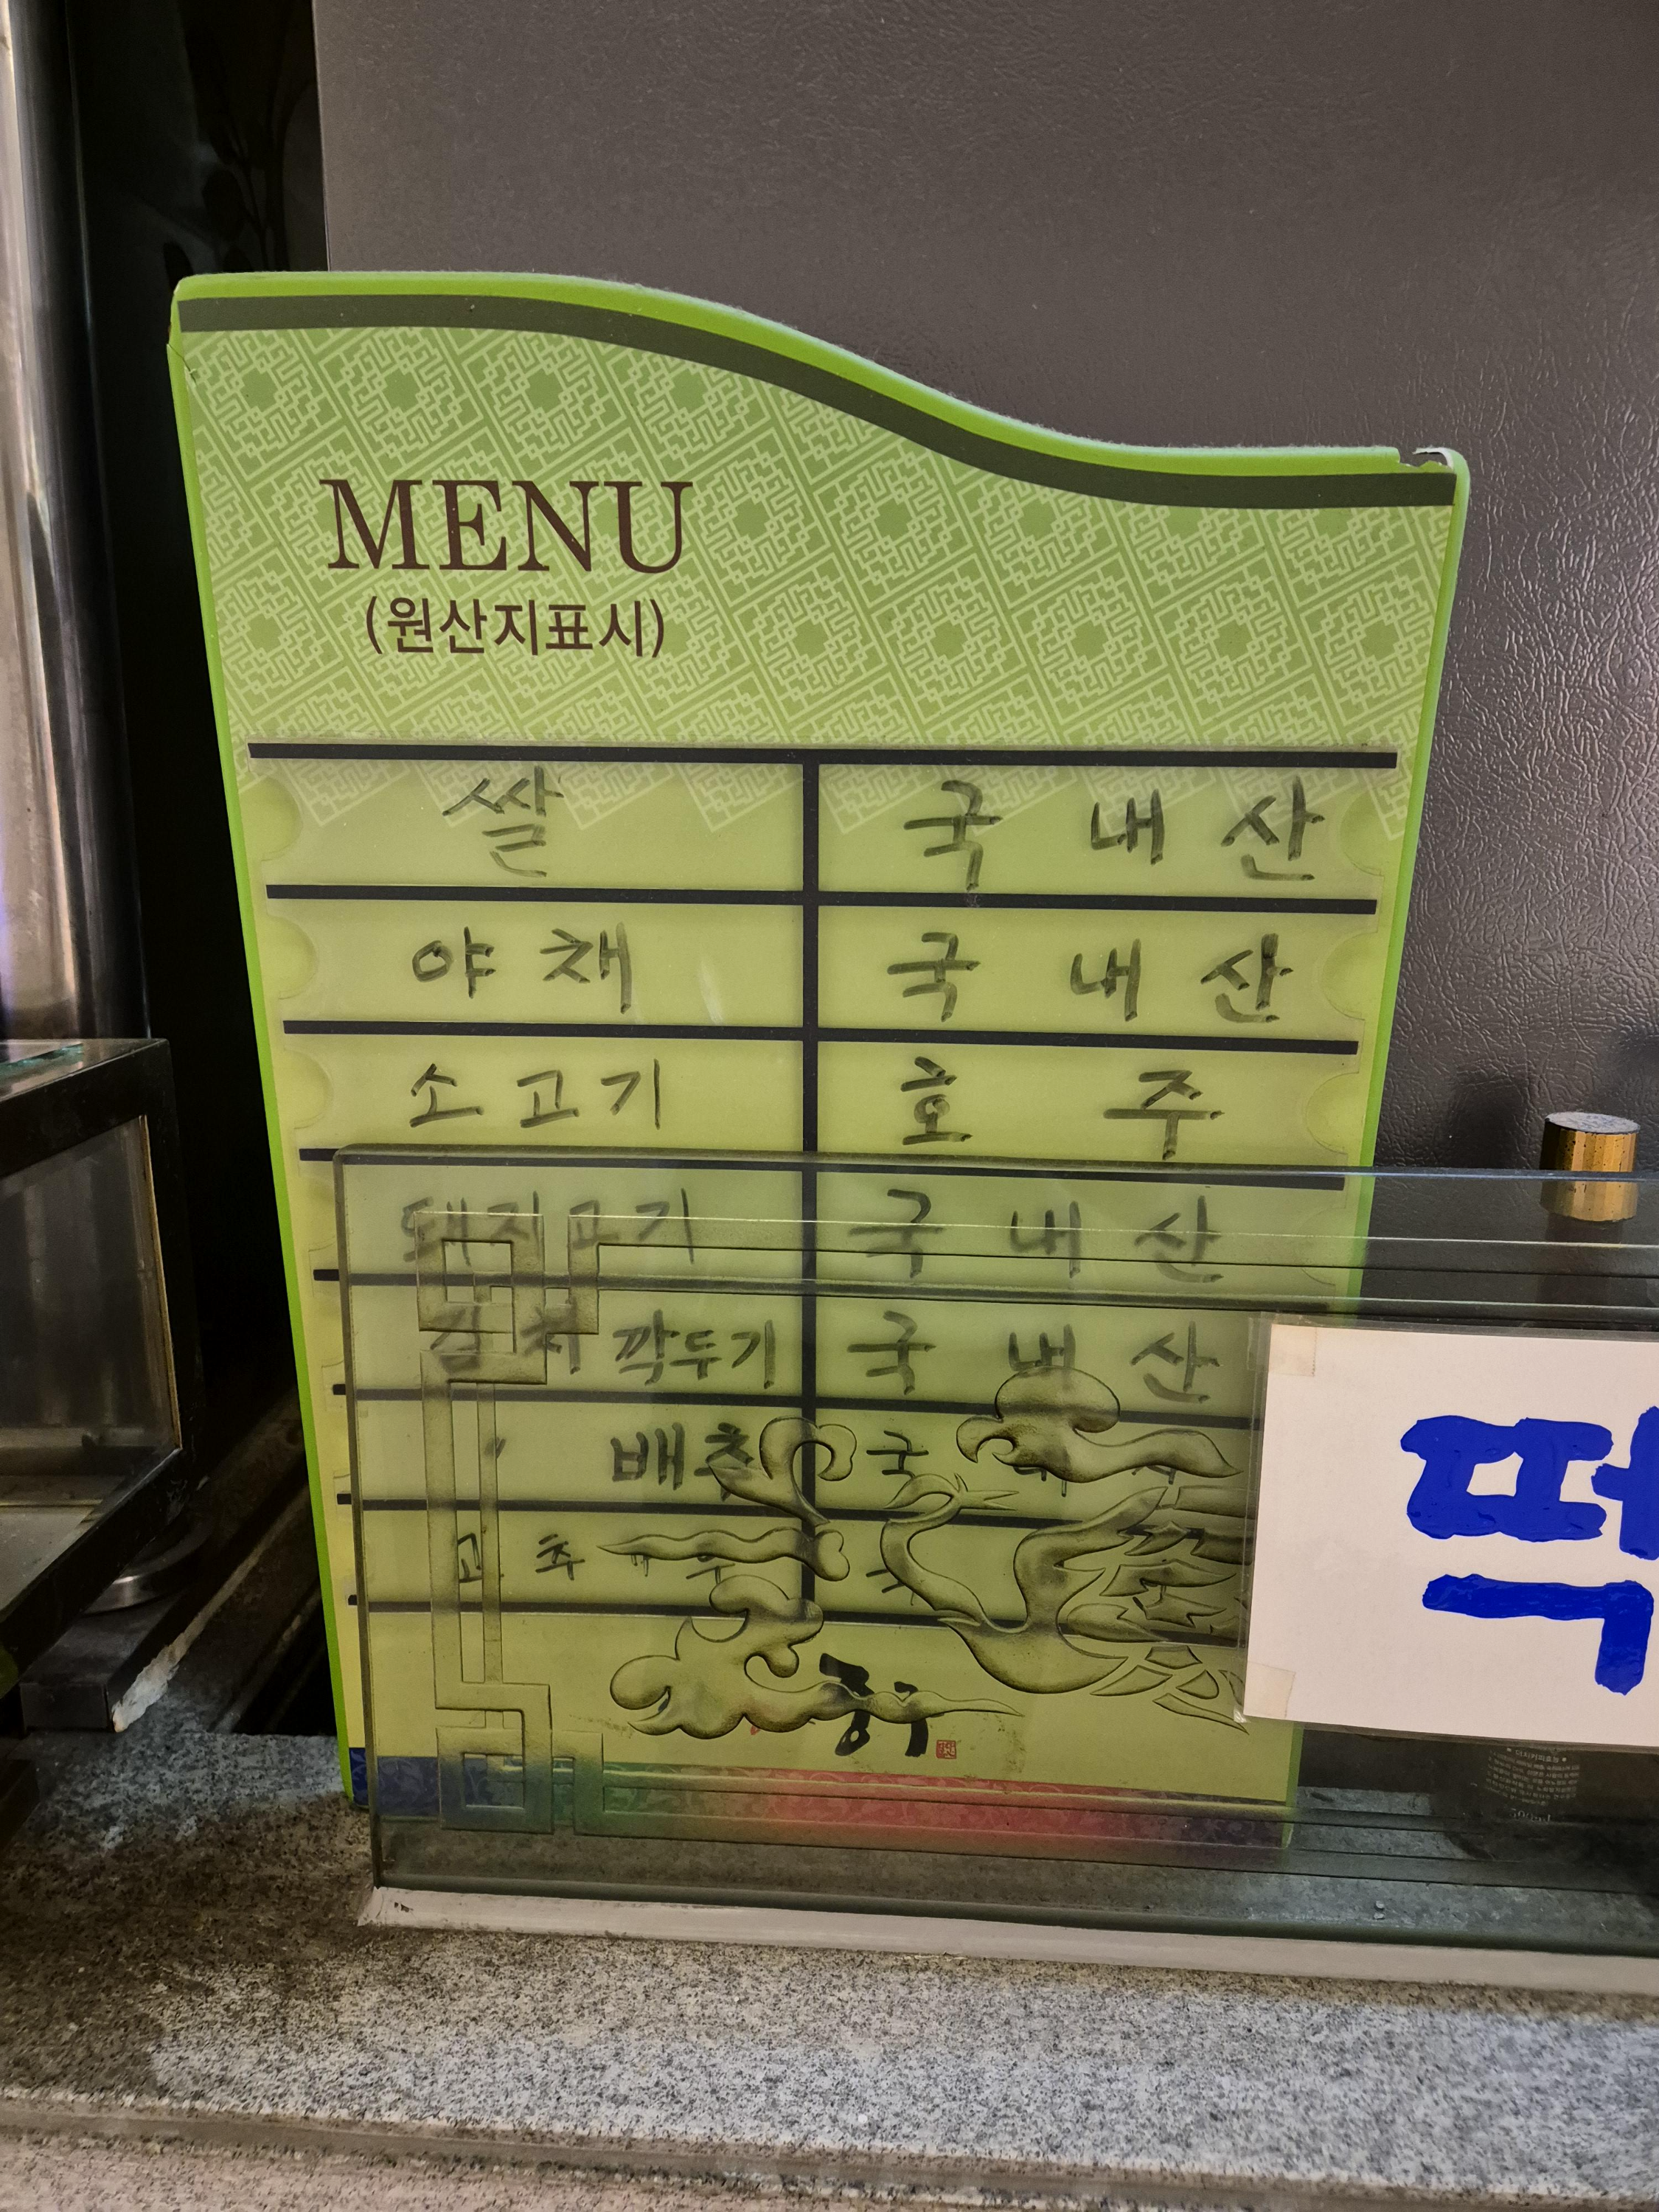 MENU
(원산지표시)
쌀 국내산
야채 국내산
소고기 호주
돼지고기 국내산
김치 깍두기 국내산
〃 배추 국
고추
500ml